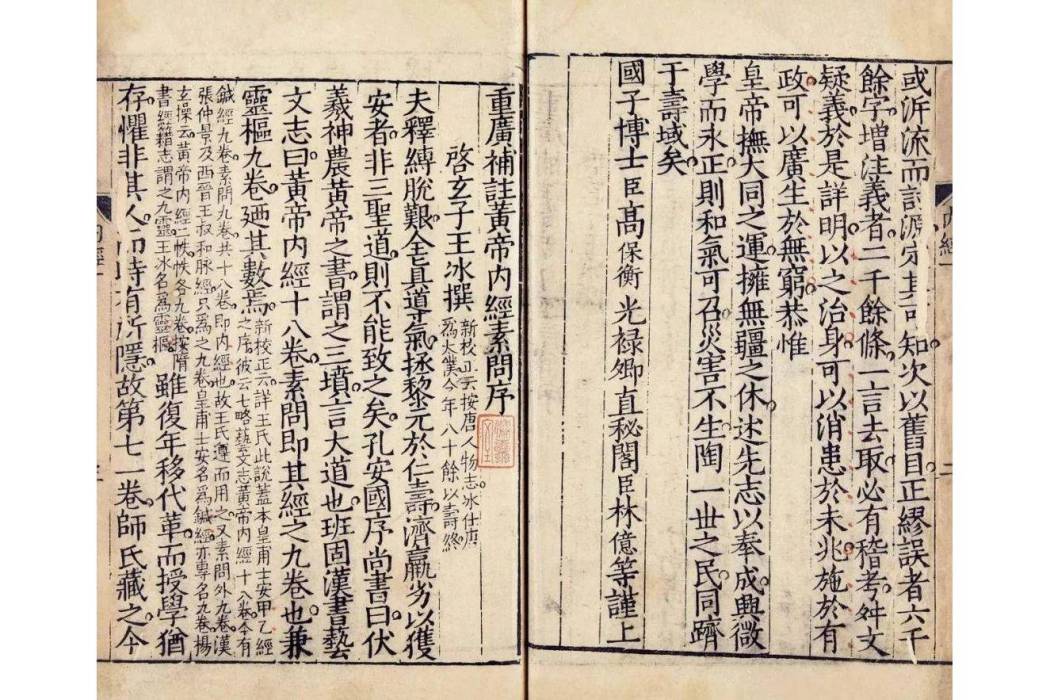 或泝流而討源定其可知次以舊目正繆誤者六千
餘字增注義者二千餘條一言去取必有稽考舛文
疑義於是詳明以之治身可以消患於未兆施於有
政可以廣生於無窮恭惟
皇帝撫大同之運擁無疆之休述先志以奉成興微
學而永正則和氣可召災害不生陶一世之民同躋
于壽域矣
國子博士臣高保衡 光禄卿直秘閣臣林億等謹上
重廣補註黃帝內經素問序
啓玄子王冰撰 新校正云按唐人物志冰仕唐
爲太僕令年八十餘以壽終
夫釋縛脫艱全真導氣拯黎元於仁壽濟羸劣以獲
安者非三聖道則不能致之矣孔安國序尚書曰伏
羲神農黃帝之書謂之三墳言大道也班固漢書藝
文志曰黃帝內經十八卷素問即其經之九卷也兼
靈樞九卷廼其數焉 新校正云詳王氏此說蓋本皇甫士安甲乙經
之序彼云七略藝文志黃帝內經十八卷今有
鍼經九卷素問九卷共十八卷即內經也故王氏遵而用之又素問外九卷漢
張仲景及西晉王叔和脉經只爲之九卷皇甫士安名爲鍼經亦專名九卷楊
玄操云黃帝內經二帙帙各九卷按隋
書經籍志謂之九靈王冰名爲靈樞
雖復年移代革而授學猶
存懼非其人而時有所隱故第七一卷師氏藏之今